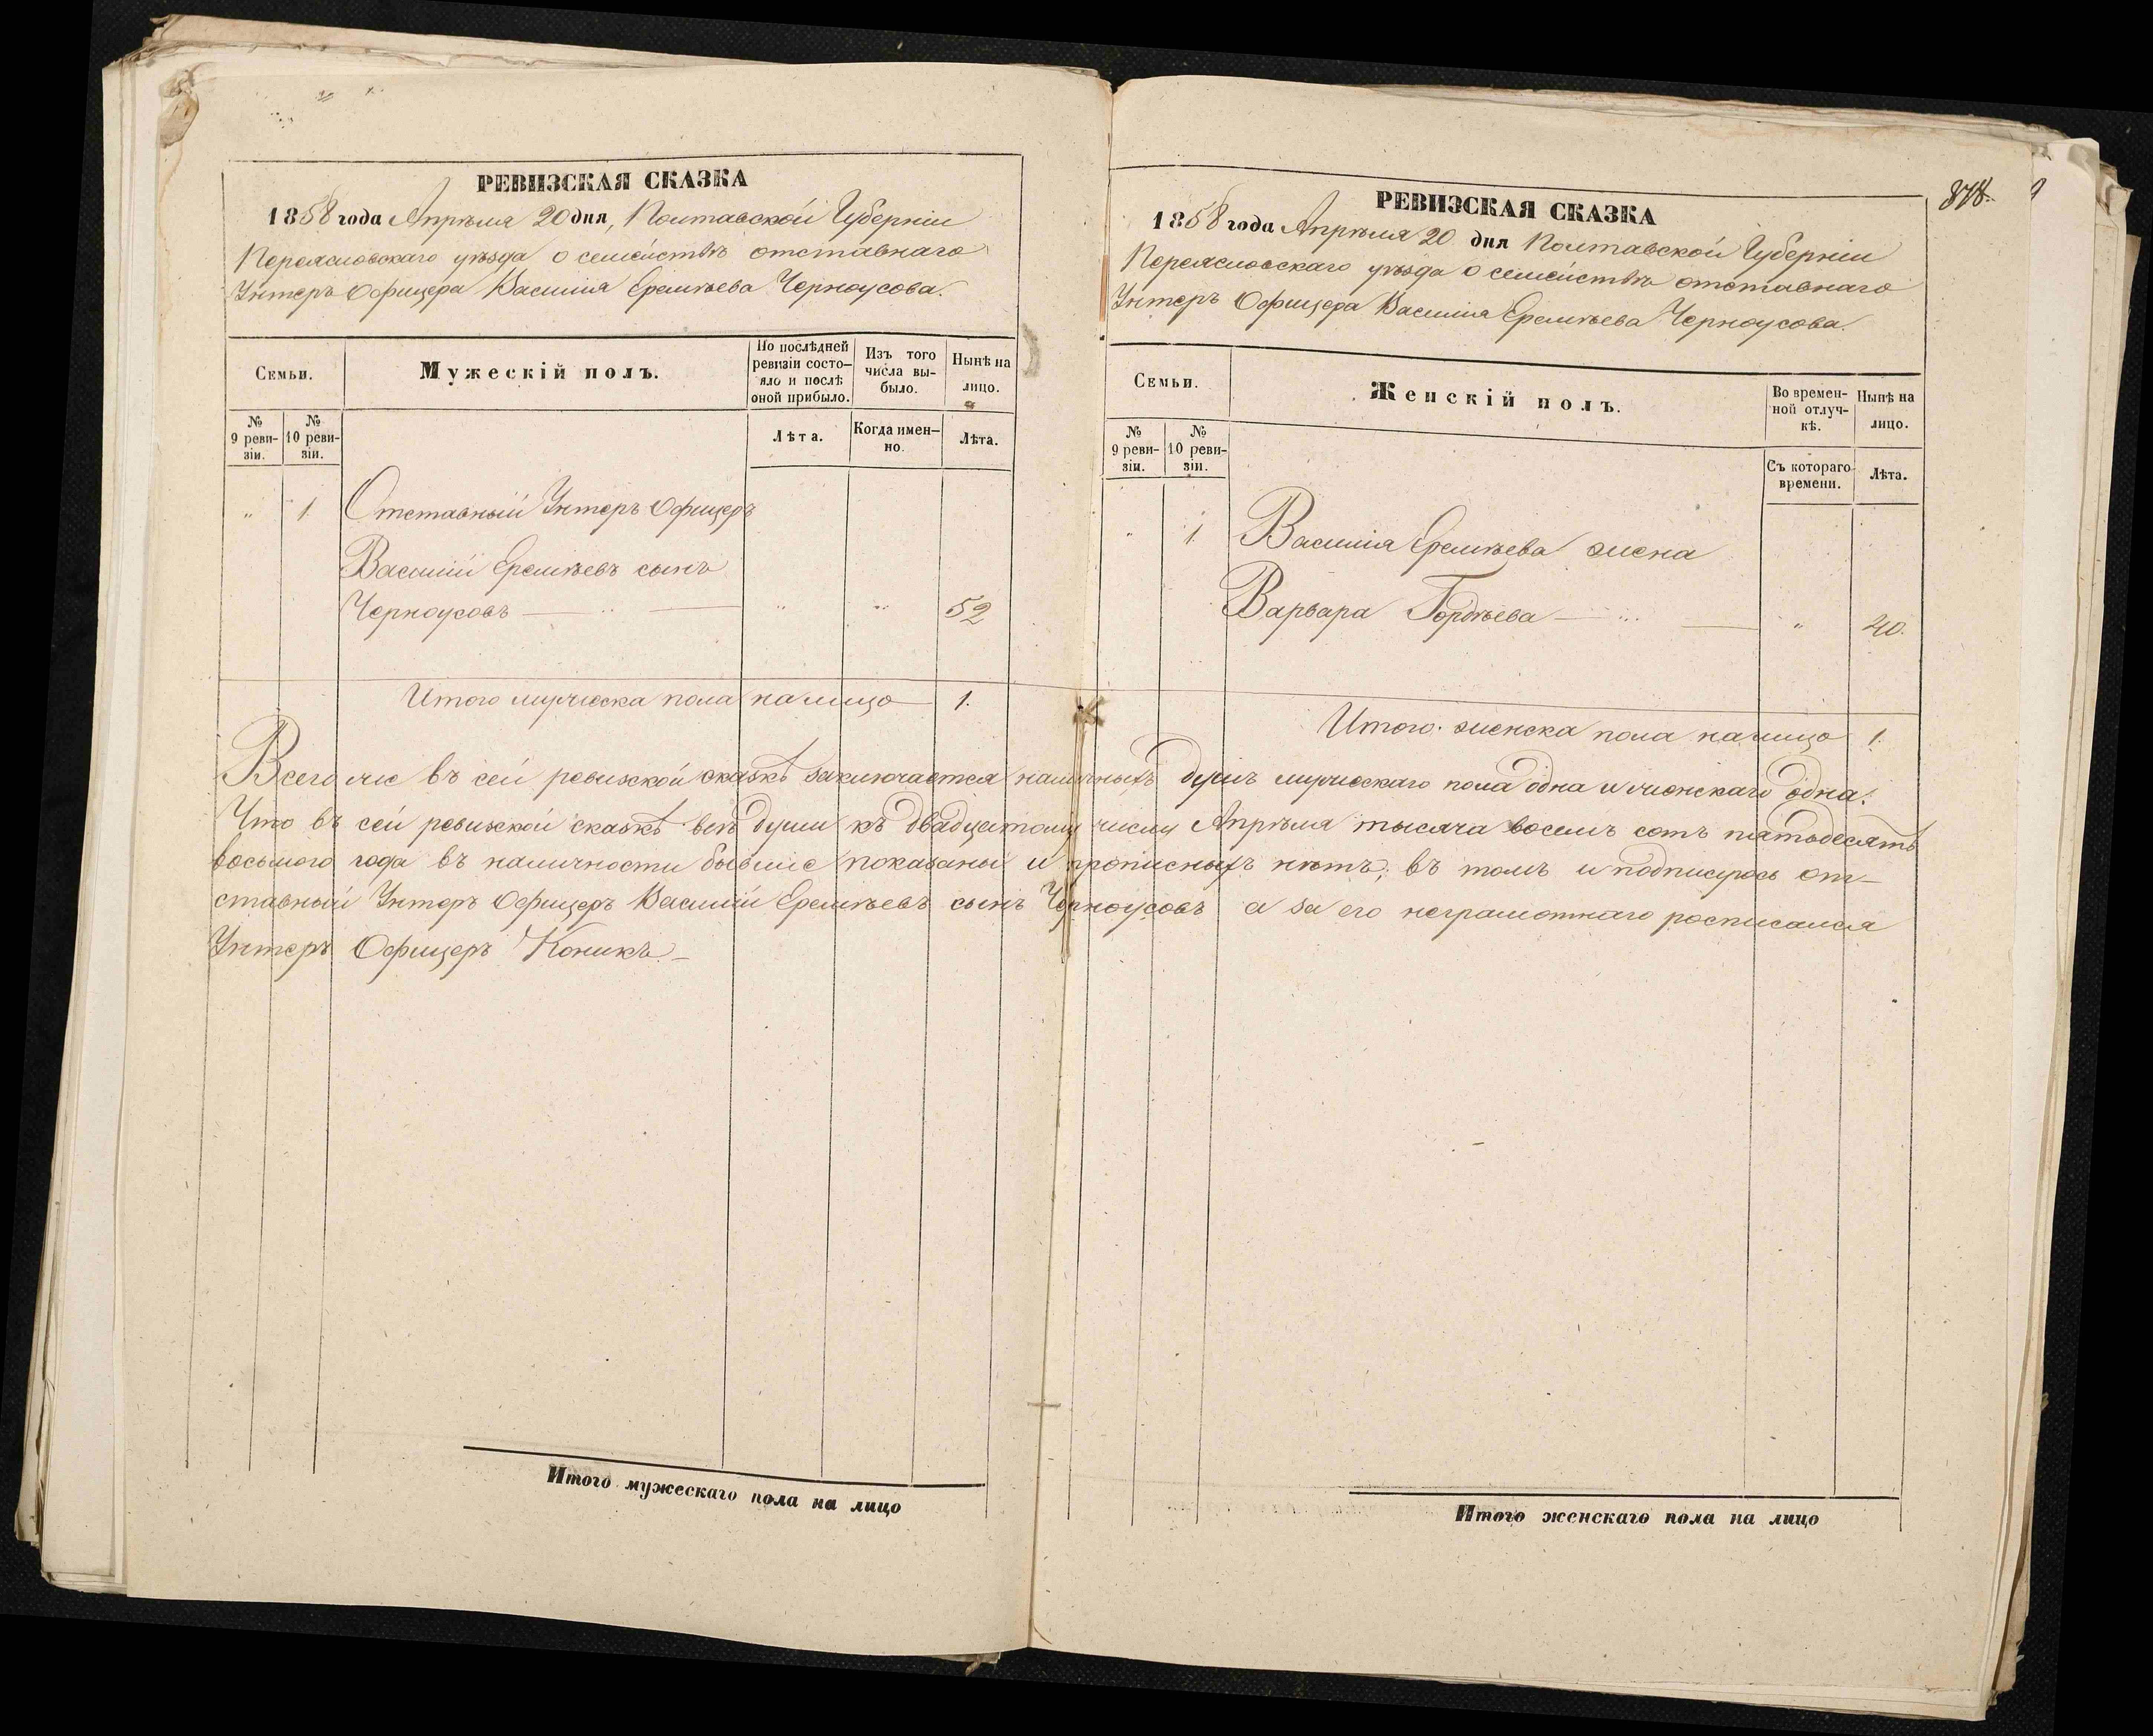 РЕВИЗСКАЯ СКАЗКА
1858 года Апрѣля 20 дня, Полтавской Губерніи
Переясловскаго уѣзда о семействѣ отставнаго
Унтеръ Офицера Василія Еремѣева Черноусова.
Семьи.
Мужескій полъ.
По послѣдней ревизіи состо-яло и послѣ оной прибыло.
Изъ того числа вы-было.
Нынѣ на лицо.
№ 9 реви-зіи.
№ 10 реви-зіи.
Лѣта.
Когда имен-но.
Лѣта.
" 1. Отставный Унтеръ Офицеръ
Василій Еремѣевъ сынъ
Черноусовъ — " — " " 52
Итого мужеска пола на лицо 1.
РЕВИЗСКАЯ СКАЗКА
878.
1858 года Апрѣля 20 дня Полтавской Губерніи
Переясловскаго уѣзда о семействѣ отставнаго
Унтеръ Офицера Василія Еремѣева Черноусова.
Семьи.
Женскій полъ.
Во времен-ной отлуч-кѣ.
Нынѣ на лицо.
№ 9 реви-зіи.
№ 10 реви-зіи.
Съ котораго времени.
Лѣта.
" 1. Василія Еремѣева жена
Варвара Гордѣева — " — " 40.
Итого женска пола на лицо 1.
Всего же въ сей ревизской сказкѣ заключается наличныхъ душъ мужескаго пола одна и женскаго одна.
Что въ сей ревизской сказкѣ всѣ души къ двадцатому числу Апрѣля тысяча восемь сотъ пятьдесятъ
восьмого года въ наличности бывшіе показаны и прописныхъ нѣтъ; въ томъ и подписуюсь от-
ставный Унтеръ Офицеръ Василій Еремѣевъ сынъ Черноусовъ а за его неграмотнаго росписался
Унтеръ Офицеръ Коникъ.
Итого мужескаго пола на лицо
Итого женскаго пола на лицо